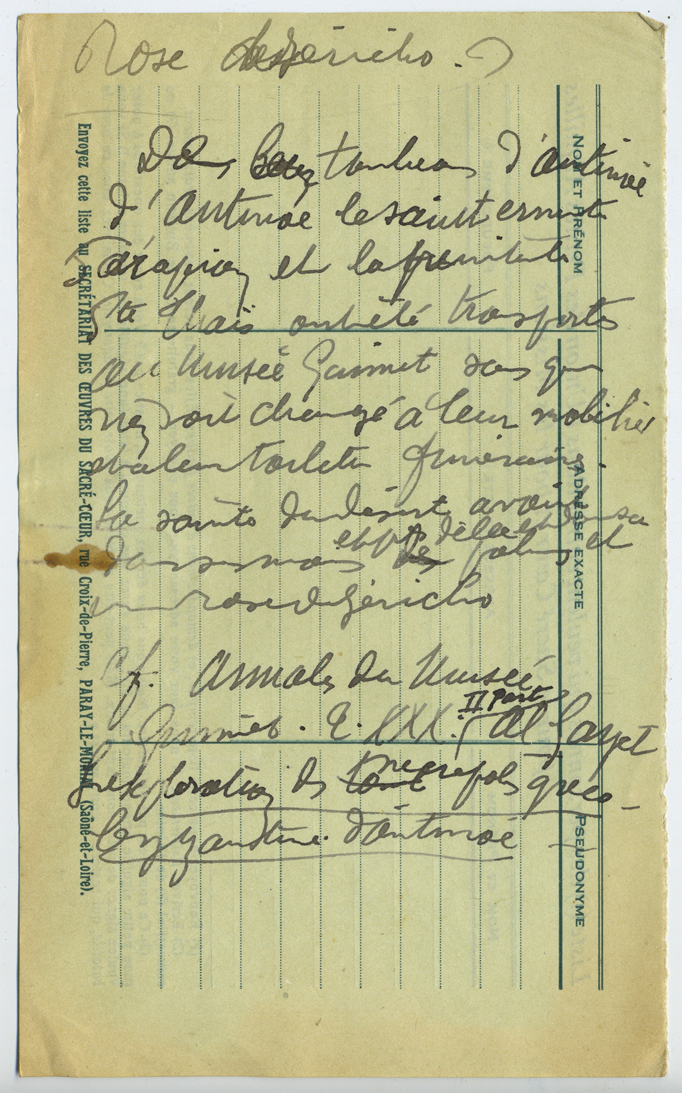 Rose de Jéricho.
Des tombeaux d'Antinoé
d'Antinoé le saint ermite
Sérapion et la pénitente
Ste Thaïs ont été transportés
au Musée Guimet sans que
rien soit changé à leur mobilier
et à leur toilette funéraire.
La sainte du désert avait
dans ses mains des palmes et
une rose de Jéricho
Cf. Annales du Musée
Guimet. T. XXX. II Part
Al Gayet
l'exploration des necropoles gréco-
byzantine d'Antinoé
Envoyez cette liste au SECRÉTARIAT DES ŒUVRES DU SACRÉ-CŒUR, rue Croix-de-Pierre, PARAY-LE-MONIAL (Saône-et-Loire).
NOM ET PRÉNOM
ADRESSE EXACTE
PSEUDONYME